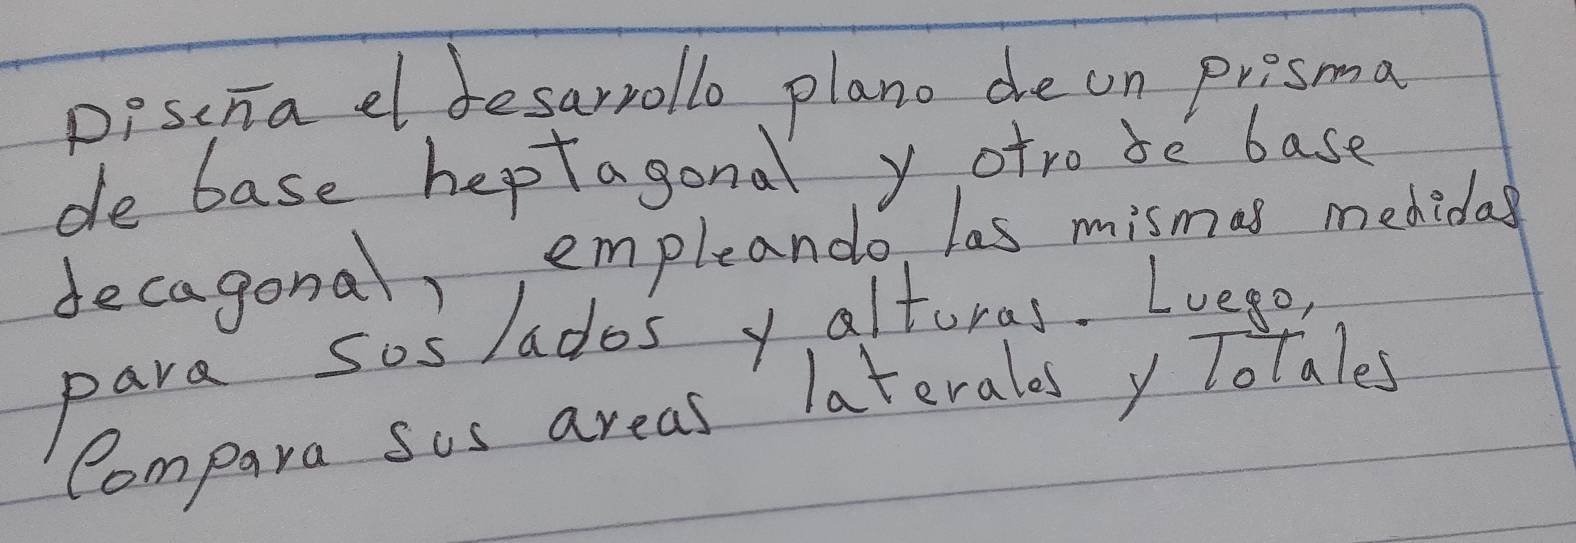 Diseña el desarrollo plano de un prisma
de base heptagonal y otro de base
decagonal, empleando las mismas medidas
para sos lados y alturas. Luego,
Compara sus areas laterales y Totales